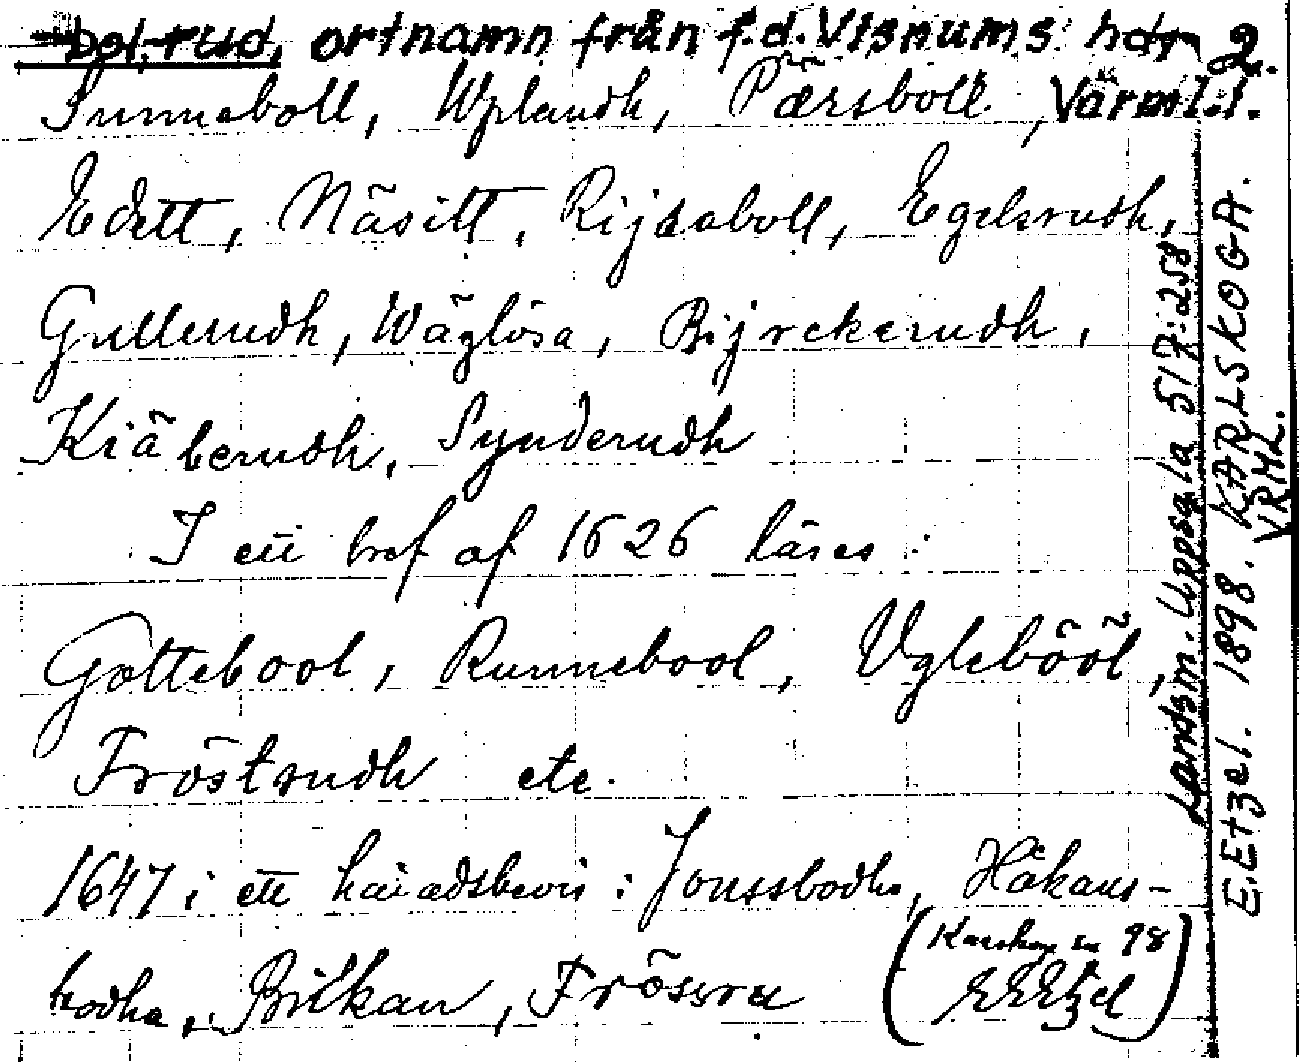 -bol,-rud, ortnamn från f.d. Visnums hdr 2.
Sunneboll, Wplandh, Pärsboll, Värml.l.
Edett, Näsitt, Rijsaboll, Egelsrudh,
Gullerudh, Wäglösa, Bijrckerudh,
Kiäberudh, Synderudh
I ett bref af 1626 läses:
Gottebool, Runnebool, Uglebööl,
Fröstrudh etc.
1647 i ett häradsbevis: Jonssbodha, Håkans-
bodha, Bitkan, Frössru
(Karlskoga 98
EEEtzel)
Landsm. Uppsala 517:258
E. Etzel. 1898. KARLSKOGA.
VRML.